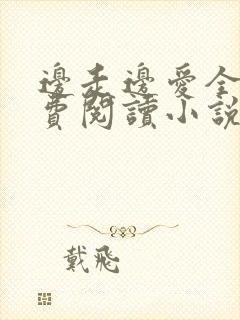 邊走邊愛全
費閱讀小說
戴飛